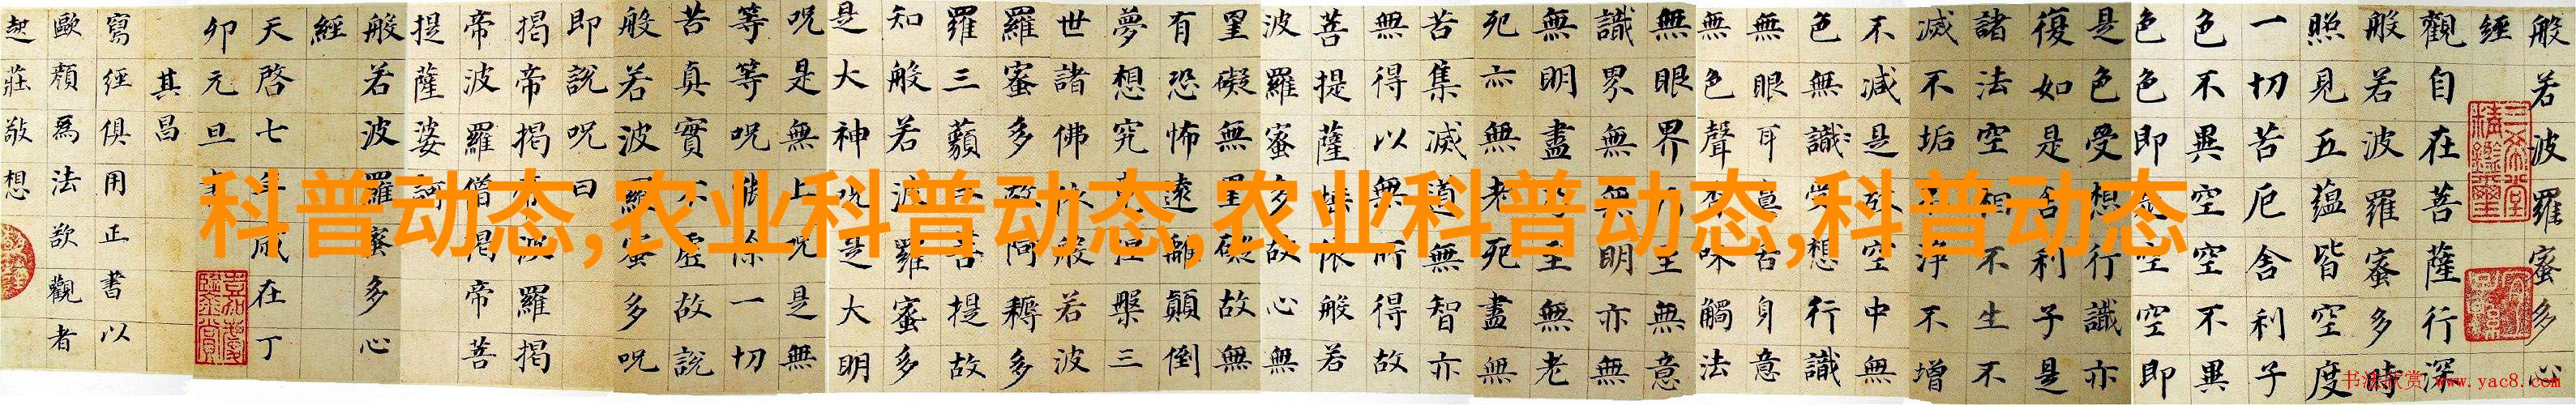 般若波羅蜜多心
經
觀自在菩薩行深
般若波羅蜜多時
照見五蘊皆空度
一切苦厄舍利子
色不異空空不異
色色即是空空即
是色受想行識亦
復如是舍利子是
諸法空相不生不
滅不垢不淨不增
不減是故空中無
色無識受想行識
無眼耳鼻舌身意
無色聲香味觸法
無眼界乃至無意
識界無無明亦無
無明盡乃至無老
死亦無老死盡無
苦集滅道無智亦
無得以無所得故
菩提薩埵依般若
波羅蜜多故心無
罣礙無罣礙故無
有恐怖遠離顛倒
夢想究竟涅槃三
世諸佛依般若波
羅蜜多故阿耨多
羅三藐三菩提故
知般若波羅蜜多
是大神咒是大明
呪是無上咒是無
等等呪能除一切
苦真實不虛故說
般若波羅蜜多呪
即說呪曰
揭帝揭帝波羅揭
帝波羅僧揭帝菩
提薩婆訶
般若波羅蜜多心
經
天啓七年歲在丁
卯元旦書
其昌
寫經俱用正書以
歐顏爲法欲觀者
起莊敬想
三希堂精鑑璽
宜子孫
科普动态,农业科普动态,农业科普动态,科普动态
书法欣赏 www.yac8.com